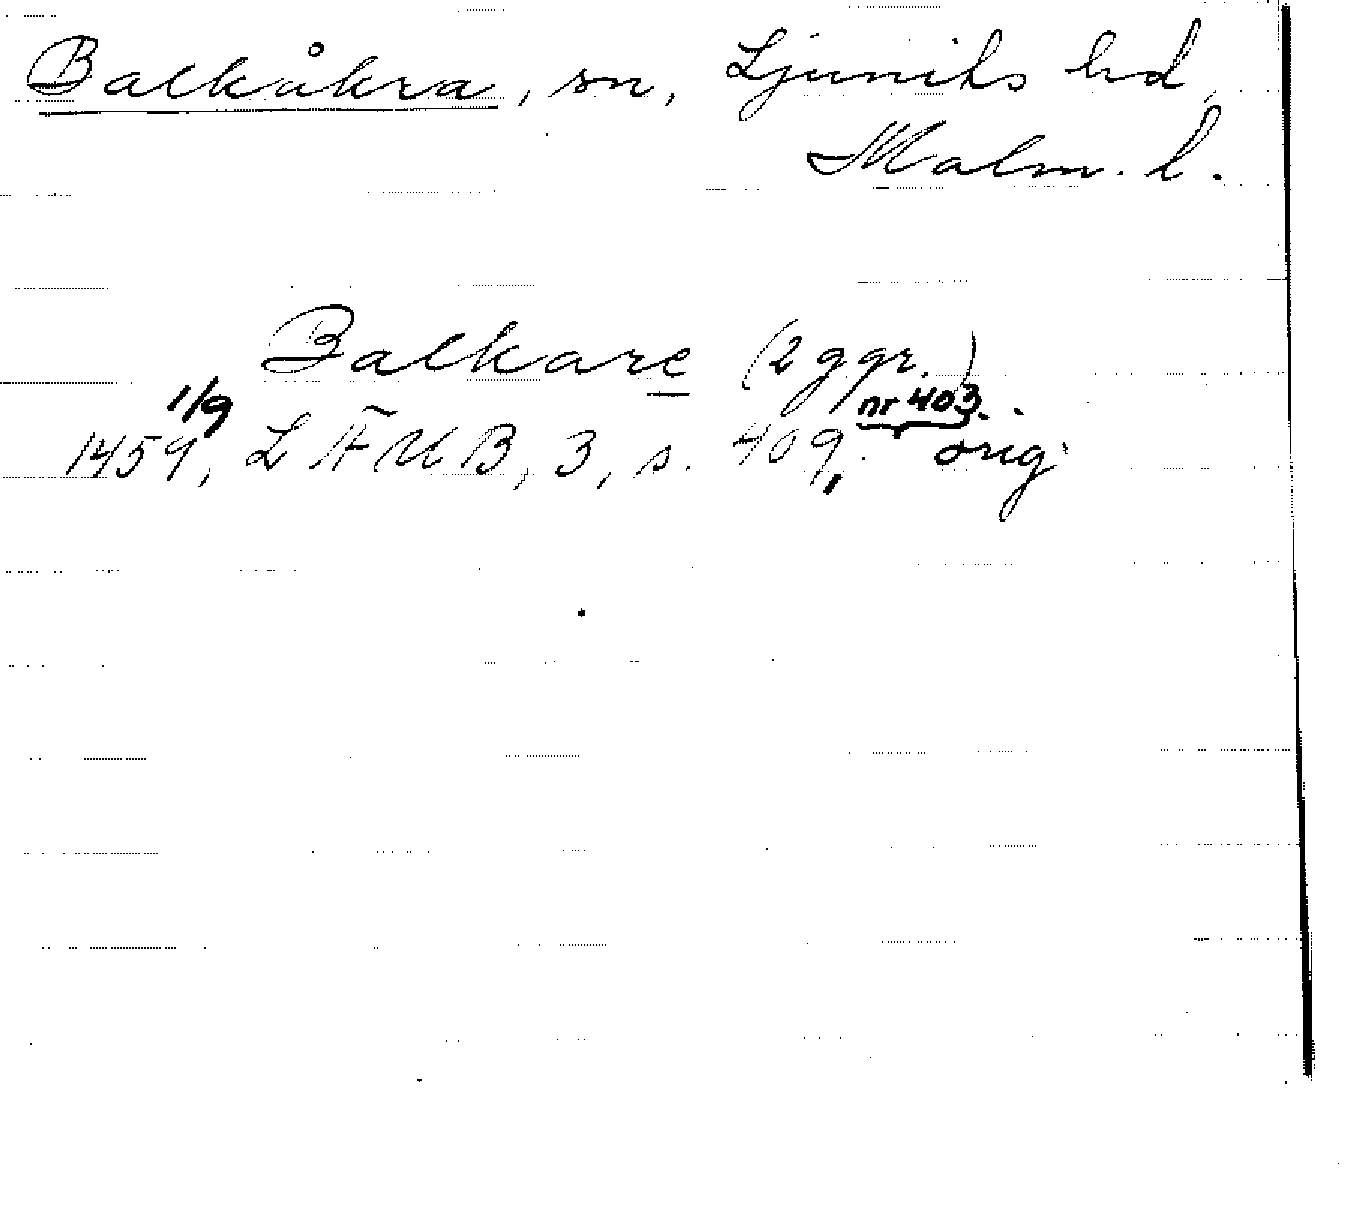 Balkåkra, sn, Ljunits hd,
Malm. l.
Balkare (2 ggr.)
1/9 nr 403.
1459, LÄUB, 3, s. 409, orig.